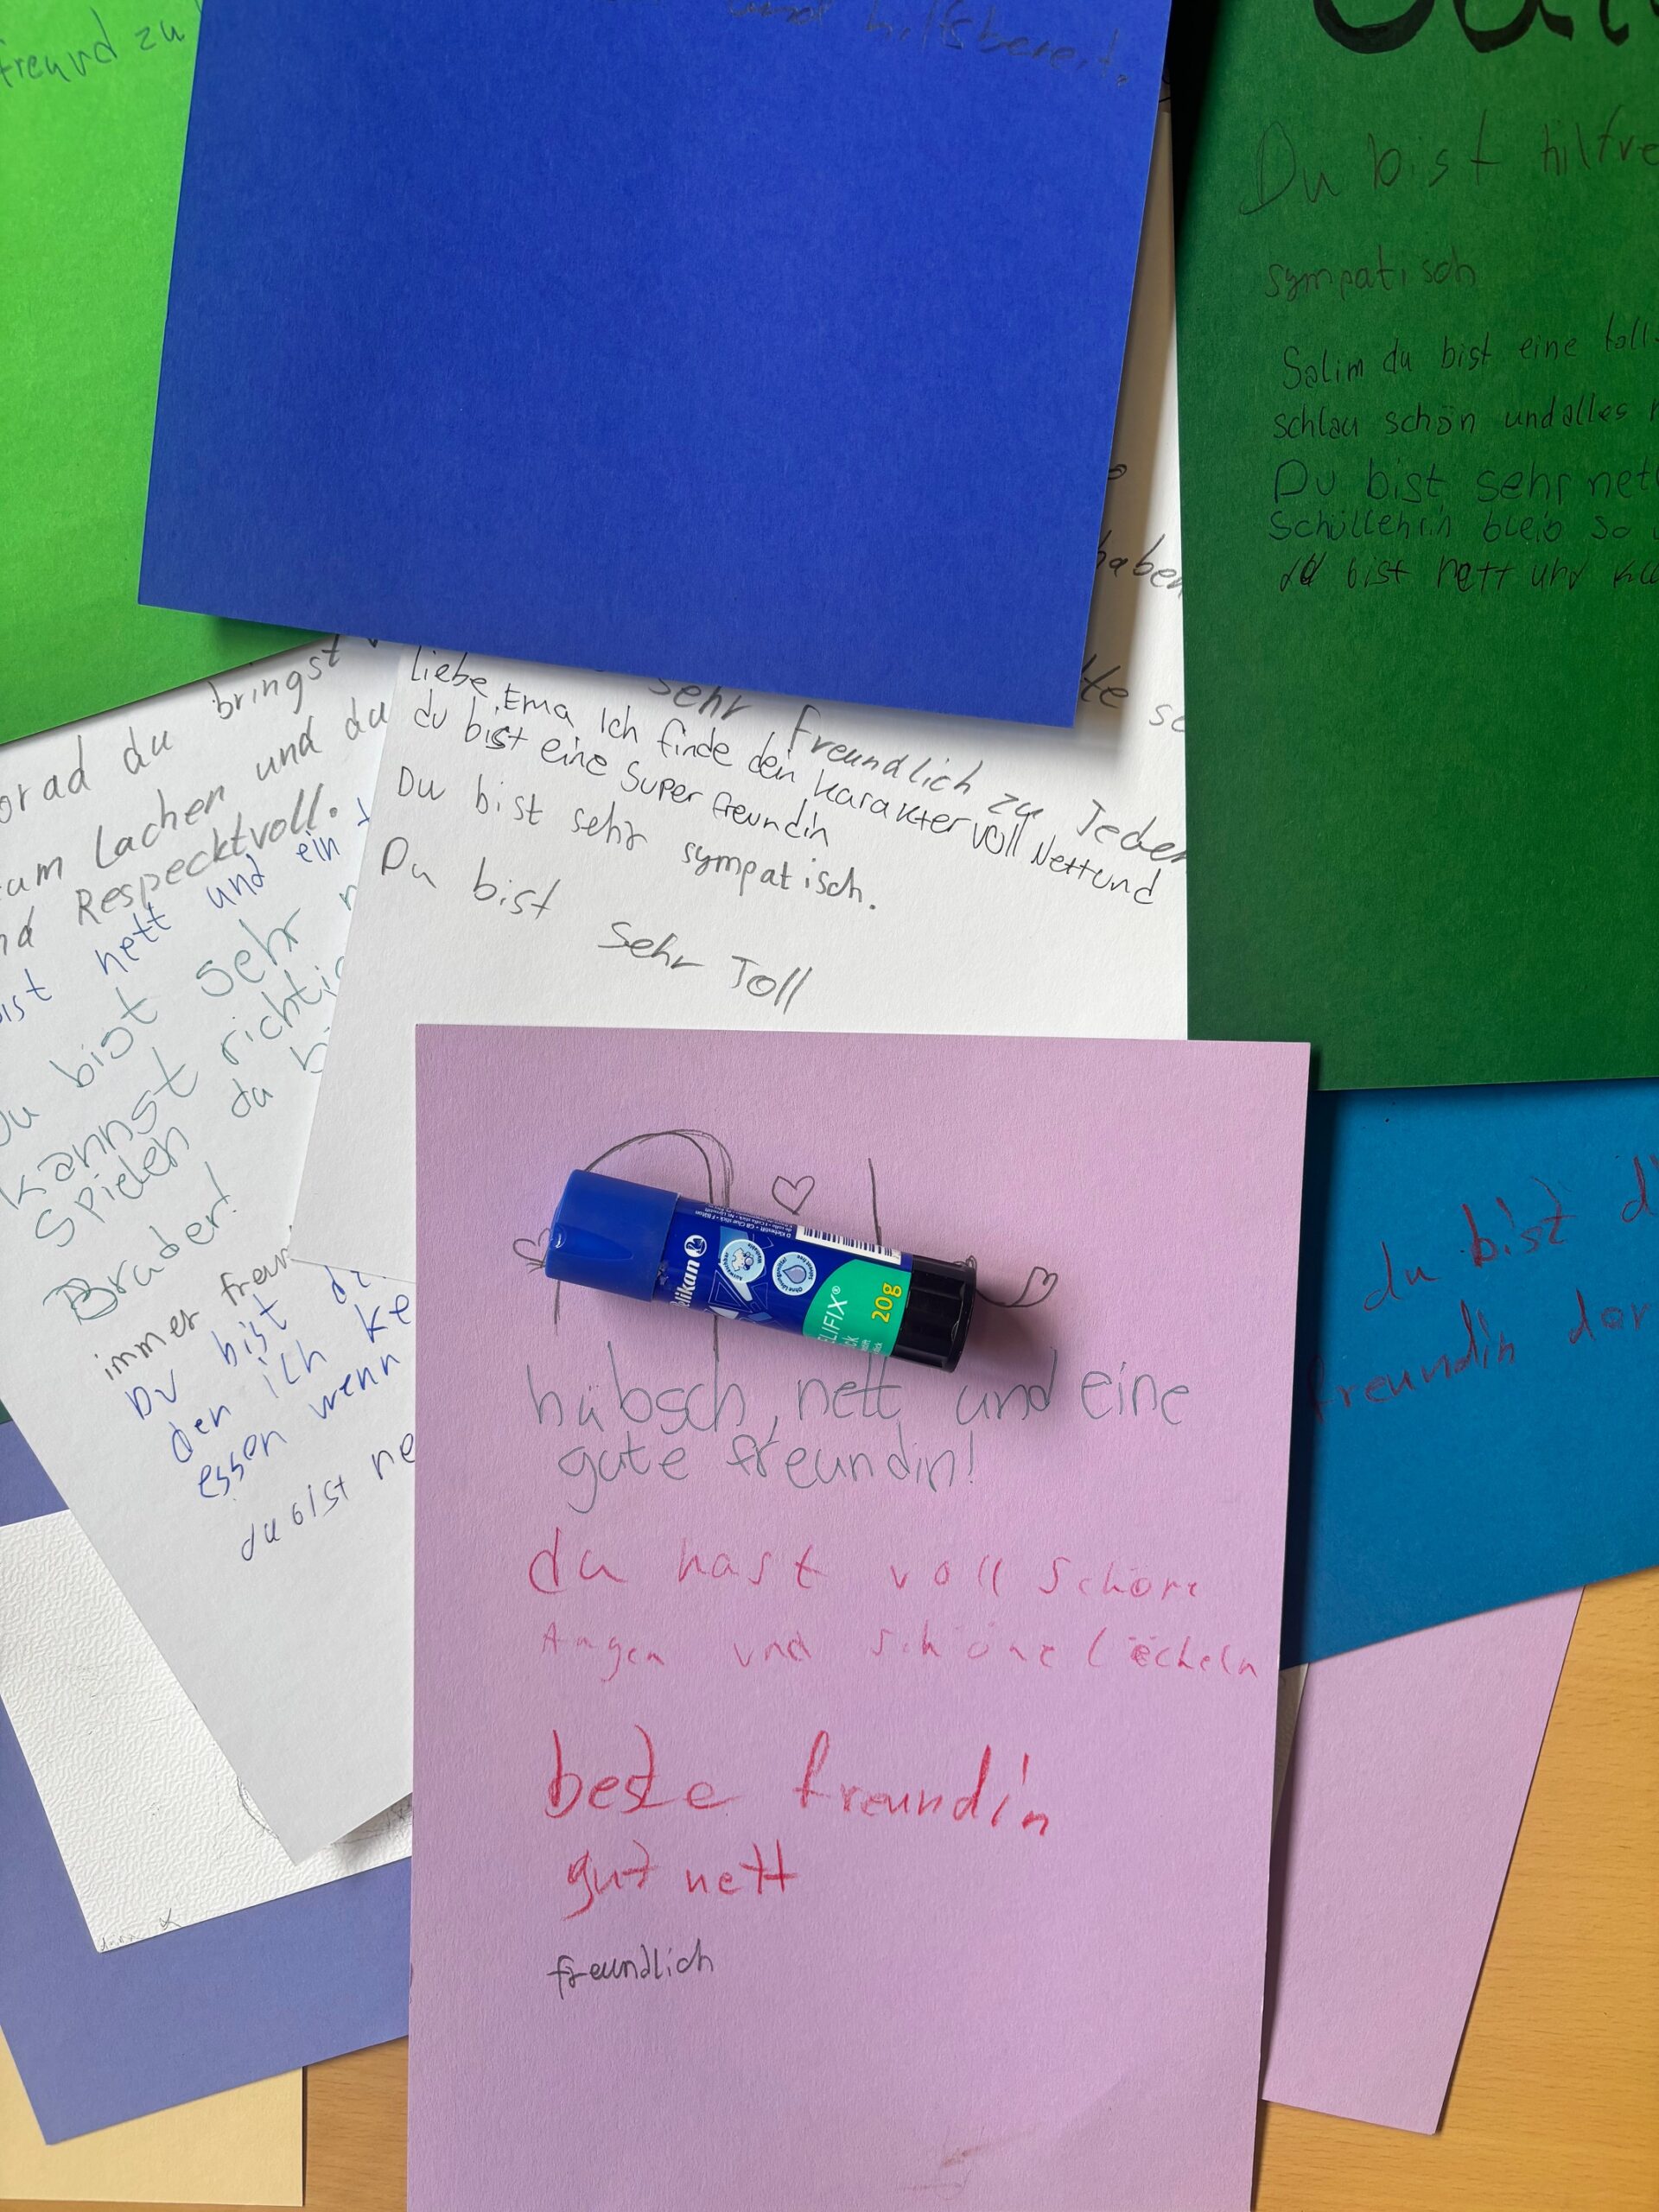 freund zu
und hilfsbereit.
Du bist hilfre
sympatisch
Salim du bist eine toll
schlau schön und alles
Du bist sehr net
Schüllehrin bleib so
du bist nett und
haben
sehr freundlich zu Jeder
liebe Ema Ich finde dein karakter voll Nett und
du bist eine super freundin
Du bist sehr sympatisch.
Du bist
Sehr Toll
orad du bringst
um Lachen und du
nd Respecktvoll.
ist nett und ein
Du bist sehr
kannst richtig
spielen du b
Bruder!
immer freun
Du bist
den ich ke
essen wenn
du bist ne
Pelikan
20g
hübsch, nett und eine
gute freundin!
du hast voll schöne
Augen und schöne lächeln
beste freundin
gut nett
freundlich
du bist d
freundin der